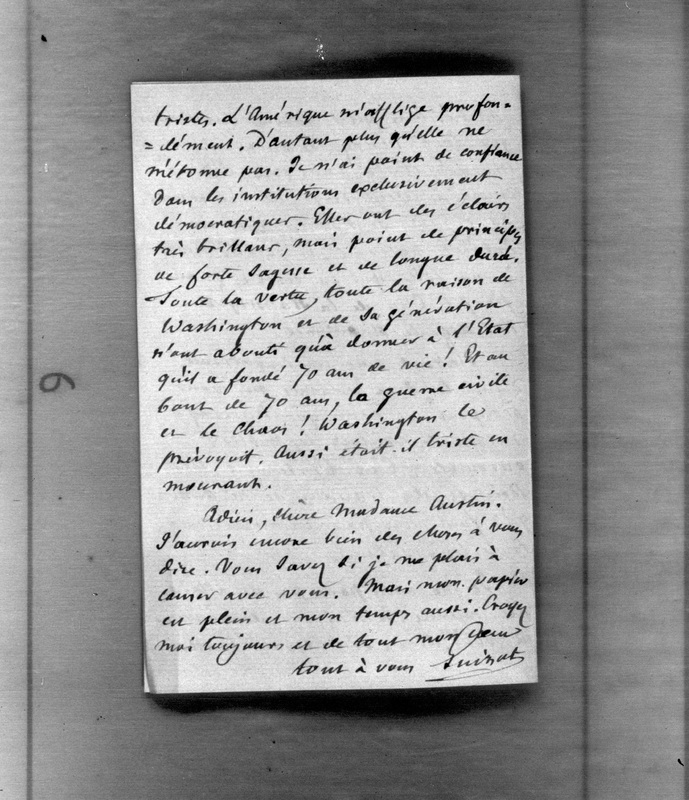 tristes. L'Amérique m'afflige profon=
=dément. D'autant plus qu'elle ne
m'étonne pas. Je n'ai point de confiance
dans les institutions exclusivement
démocratiques. Elles ont des éclairs
très brillans, mais point de principes
de forte sagesse et de longue durée.
Toute la vertu, toute la raison de
Washington et de sa génération
n'ont abouti qu'à donner à l'Etat
qu'il a fondé 70 ans de vie! Et au
bout de 70 ans, la guerre civile
et le chaos! Washington le
prévoyoit. Aussi était-il triste en
mourant.
Adieu, chère Madame Austin.
J'aurois encore bien des choses à vous
dire. Vous savez si je me plais à
causer avec vous. Mais mon papier
est plein et mon temps aussi. Croyez
moi toujours et de tout mon coeur
tout à vous Guizot
6